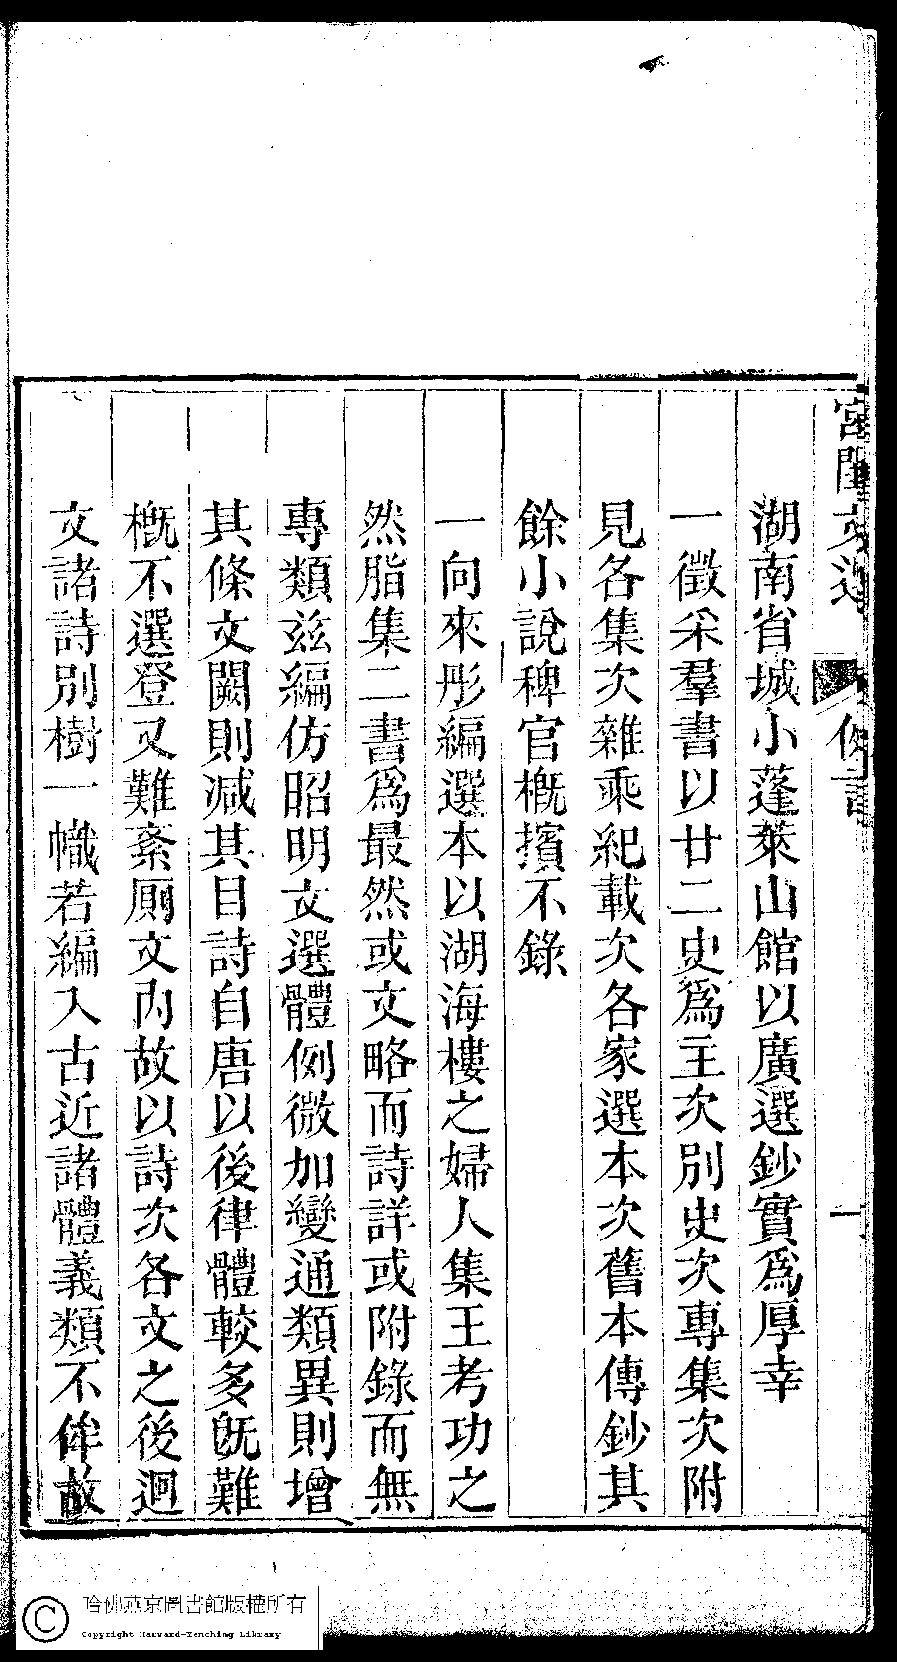 宮閨文選
例言
一
湖南省城小蓬萊山館以廣選鈔實爲厚幸
一徵采羣書以廿二史爲主次別史次專集次附
見各集次雜乘紀載次各家選本次舊本傳鈔其
餘小說稗官槪擯不錄
一向來彤編選本以湖海樓之婦人集王考功之
然脂集二書爲最然或文略而詩詳或附錄而無
專類玆編仿昭明文選體例微加變通類異則增
其條文闕則減其目詩自唐以後律體較多旣難
槪不選登又難紊厠文內故以詩次各文之後迥
文諸詩別樹一幟若編入古近諸體義類不侔故
哈佛燕京圖書館版權所有
Copyright Harvard-Yenching Library